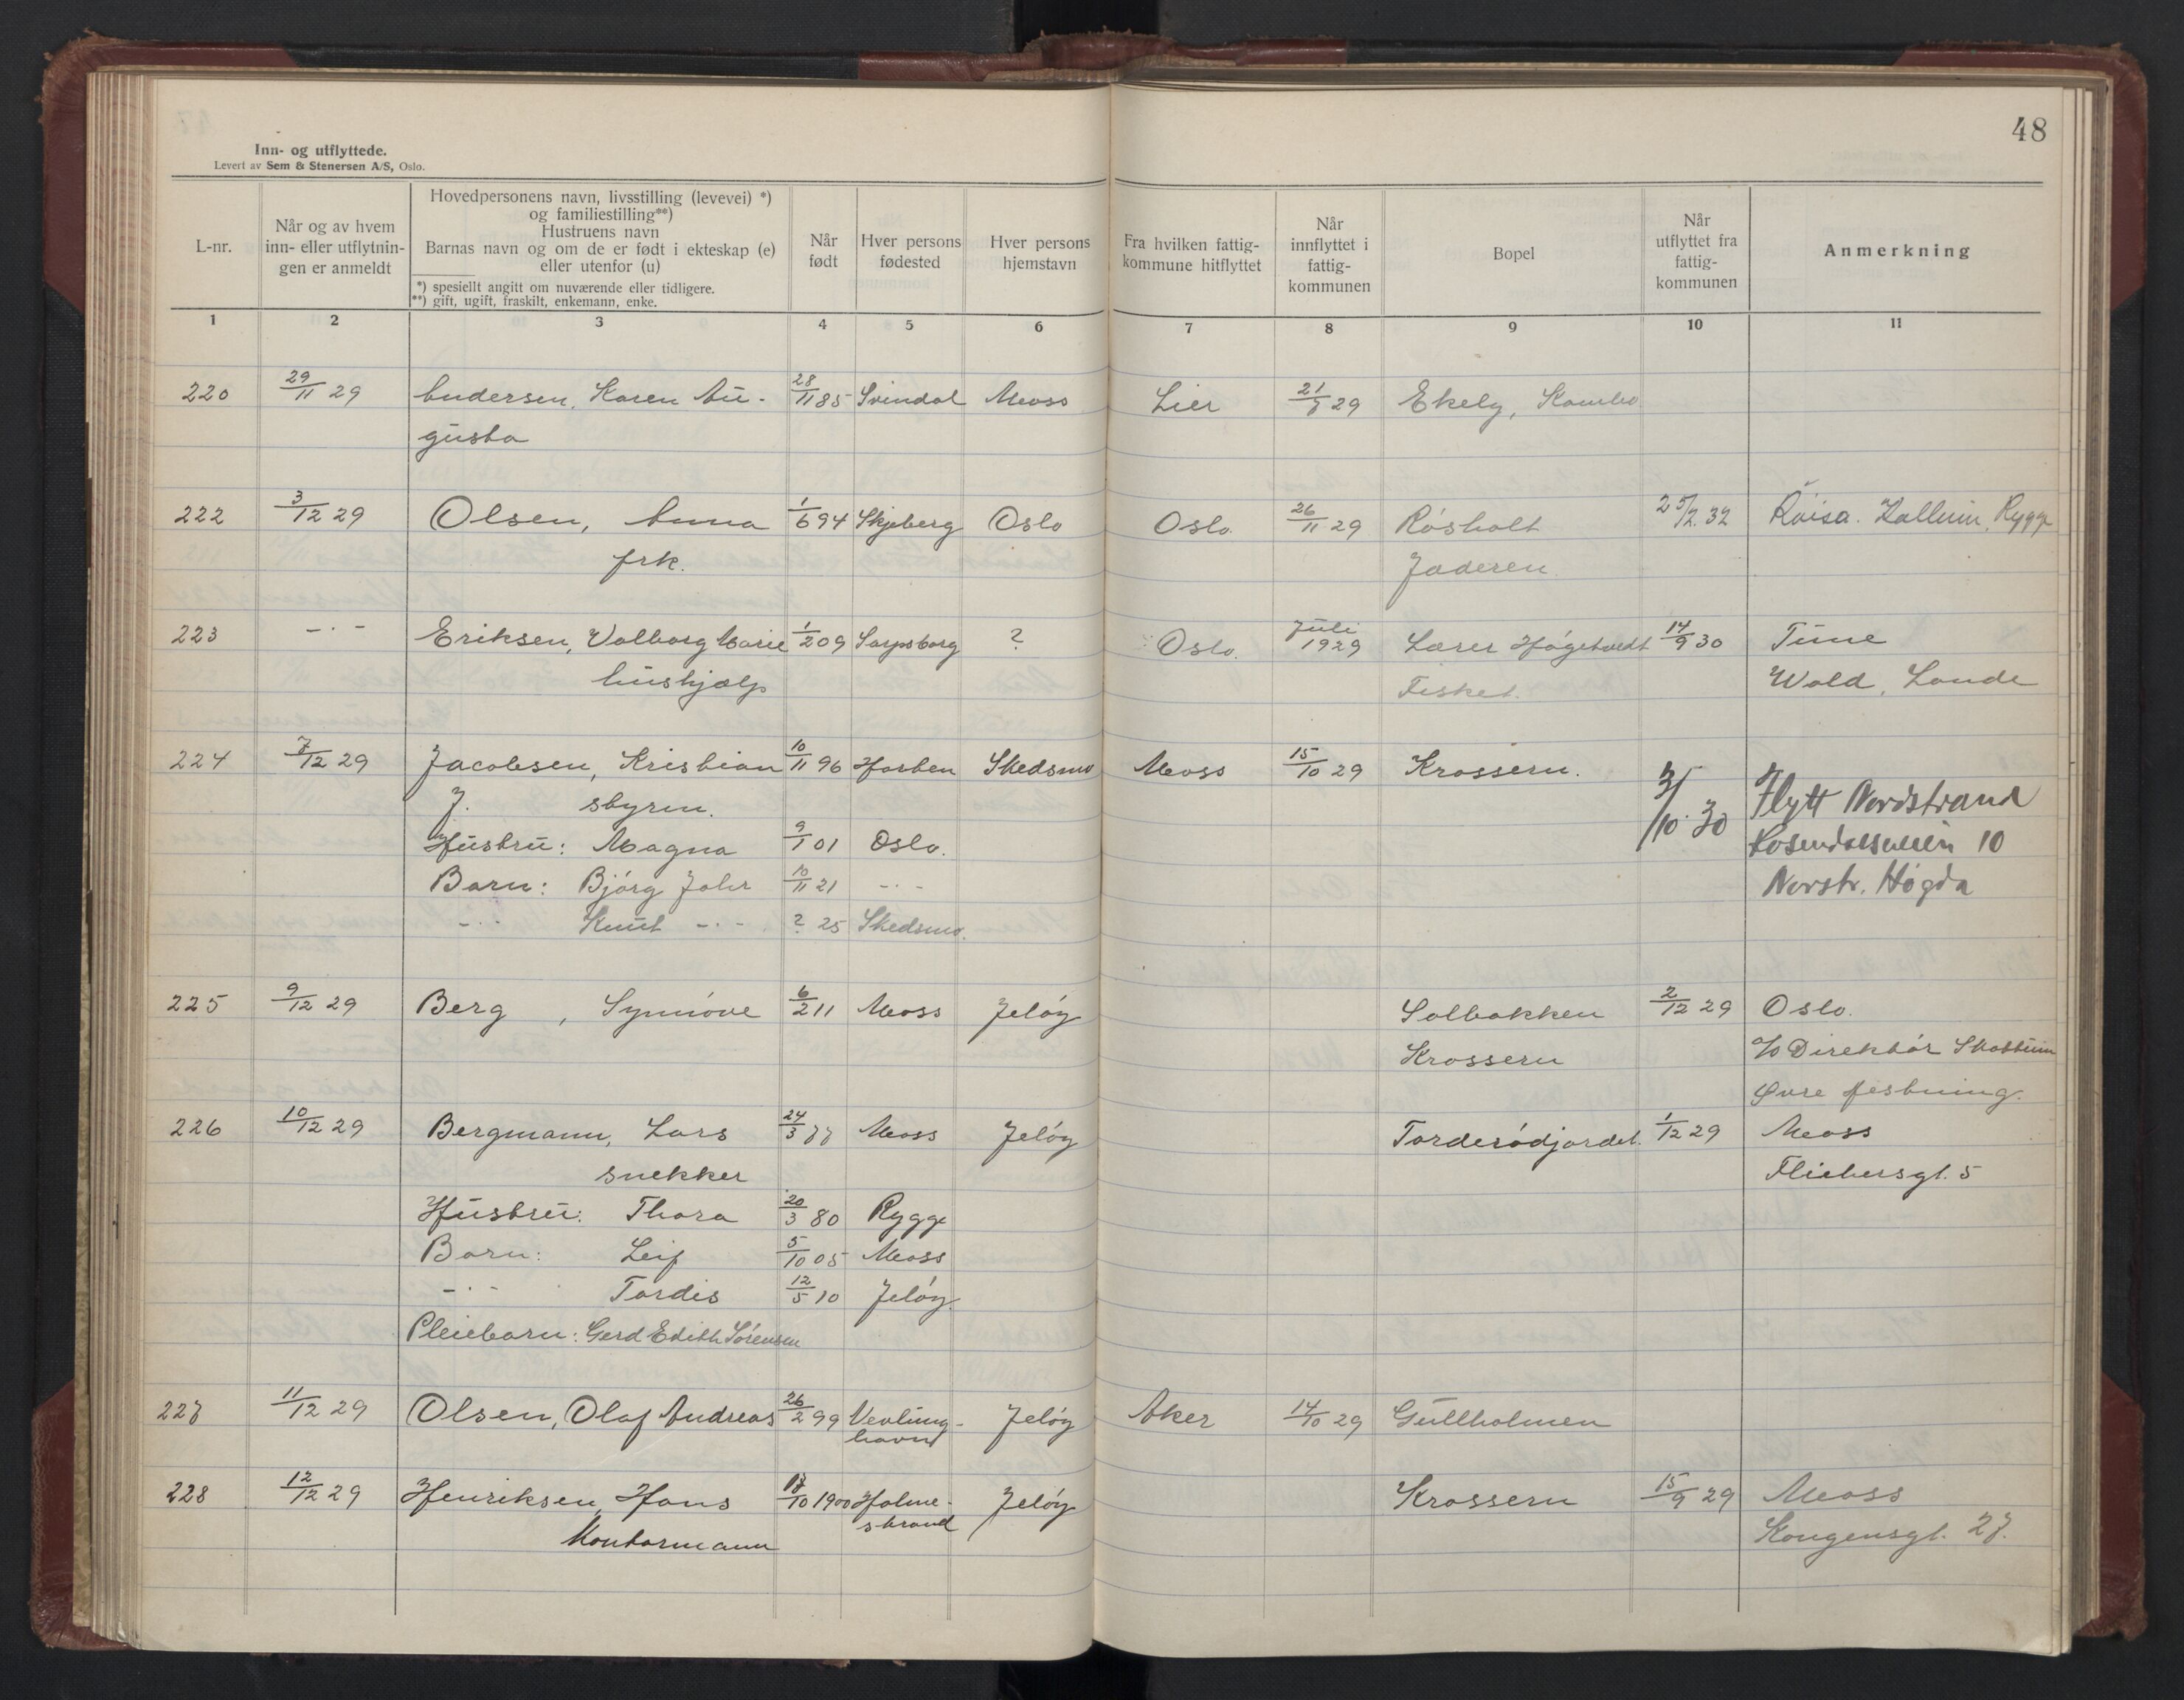 48
Inn- og utflyttede.
Levert av Sem & Stenersen A/S, Oslo.
L-nr.
Når og av hvem
inn- eller utflytnin-
gen er anmeldt
Hovedpersonens navn, livsstilling (levevei) *)
og familiestilling**)
Hustruens navn
Barnas navn og om de er født i ekteskap (e)
eller utenfor (u)
*) spesiellt angitt om nuværende eller tidligere.
**) gift, ugift, fraskilt, enkemann, enke.
Når
født
Hver persons
fødested
Hver persons
hjemstavn
Fra hvilken fattig-
kommune hitflyttet
Når
innflyttet i
fattig-
kommunen
Bopel
Når
utflyttet fra
fattig-
kommunen
Anmerkning
1 2 3 4 5 6 7 8 9 10 11
220 29/11 29 Andersen, Karen Au- 28/11 85 Svindal Moss Lier 21/8 29 Ekely, Kambo
gusta
222 3/12 29 Olsen, Anna 1/6 94 Skjeberg Oslo Oslo. 26/11 29 Rósholt 25/2.32 Röisa. Kallum, Rygge
frk. Jaderen.
223 -·- Eriksen, Valborg Marie 1/2 09 Sarpsborg ? Oslo. Juli 1929 Lærer Høgetvedt 14/9 30 Tune
hushjælp Fisket. Wold, Lande
224 7/12 29 Jacobsen, Kristian 10/11 96 Horten Skedsmo Moss 15/10 29 Krossern.
J. styrm. 3/10.30 Flytt Nordstrand
Hustru: Magna 9/1 01 Oslo. Rosendalsveien 10
Barn: Bjórg Johr 10/11 21 -·- Norstr. Høgda
-·- Knut -·- ? 25 Skedsmo.
225 9/12 29 Berg, Synnóve 6/2 11 Moss Jelóy Solbakken 2/12 29 Oslo.
Krossern c/o Direktór Skottum
Øvre festning.
226 10/12 29 Bergmann, Lars 24/3 77 Moss Jelóy Torderódjordet. 1/12 29 Moss
snekker Flichersgt. 5
Hustru: Thora 20/3 80 Rygge
Barn: Leif 5/10 05 Moss
-·- Tordis 12/5 10 Jelóy.
Pleiebarn: Gerd Edith Sórensen
227 11/12 29 Olsen, Olaf Andreas 26/2 99 Aker 14/10 29 Gullholmen
havn Jelóy
228 12/12 29 Henriksen, Hans 17/10 1900 Holme- Jelóy Krossern 15/9 29 Moss
Kontormann strand Kongensgt. 27.